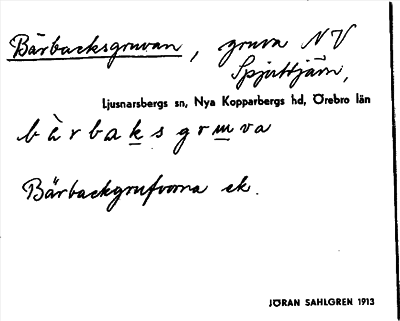 Bärbacksgruvan, gruva NV
Spjuttjärn,
Ljusnarsbergs sn, Nya Kopparbergs hd, Örebro län
bàrbaksgruva
Bärbackgrufvorna ek.
JÖRAN SAHLGREN 1913